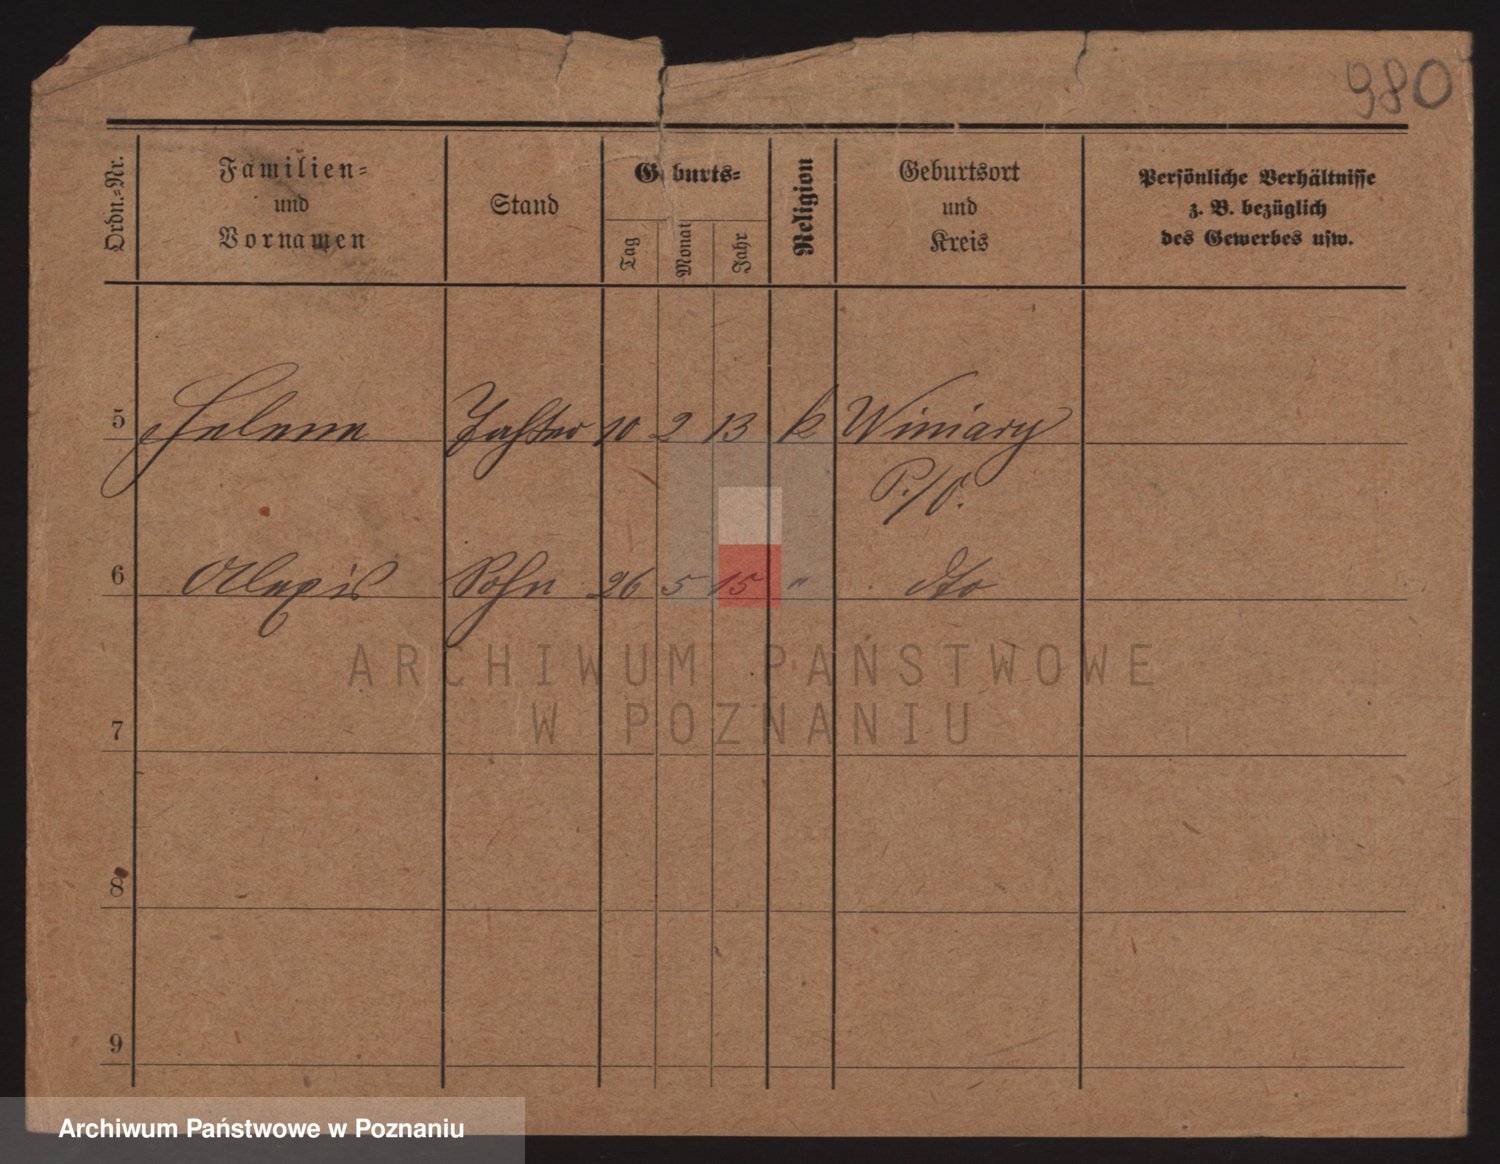 980
Ordn.-Nr.
Familien-
und
Vornamen
Stand
Geburts-
Tag
Monat
Jahr
Religion
Geburtsort
und
Kreis
Persönliche Verhältnisse
z. B. bezüglich
des Gewerbes usw.
5 Helene Tochter 10 2 13 k Winiary
P./O.
6 Alexis Sohn 26 5 15 " dto
ARCHIWUM PAŃSTWOWE
W POZNANIU
7
8
9
Archiwum Państwowe w Poznaniu